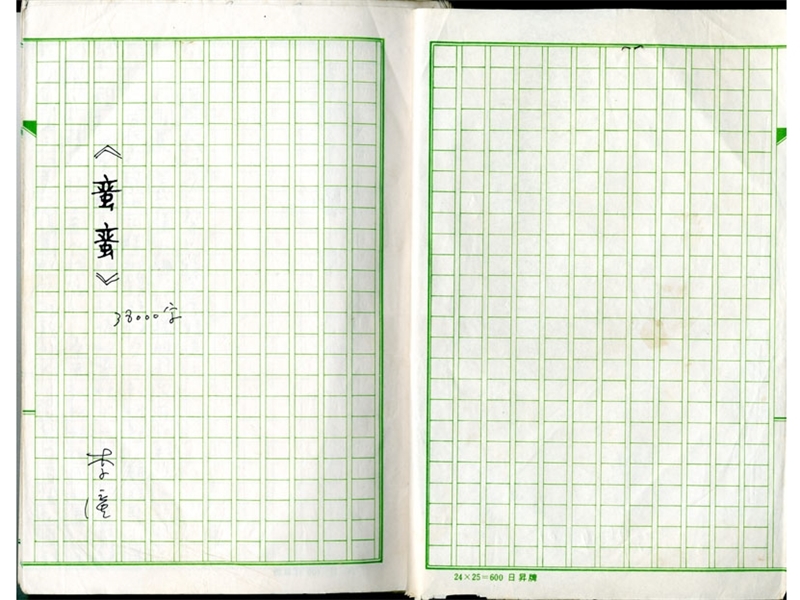 《蛮蛮》
38000字
李潼
24×25=600 日昇牌